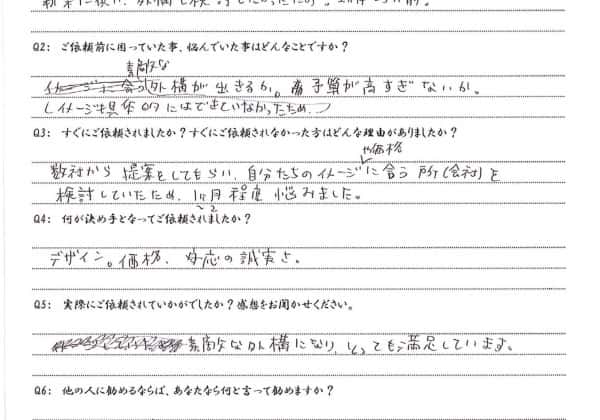 Q2: ご依頼前に困っていた事、悩んでいた事はどんなことですか？
素敵な
外構が出きるか。予算が高すぎないか。
(イメージも具体的にはできていなかったため、)
Q3: すぐにご依頼されましたか？すぐにご依頼されなかった方はどんな理由がありましたか？
や価格
数社から提案をしてもらい、自分たちのイメージに合う所(会社)を
検討していたため、1ヶ月程度悩みました。
2
Q4: 何が決め手となってご依頼されましたか？
デザイン。価格、対応の誠実さ。
Q5: 実際にご依頼されていかがでしたか？感想をお聞かせください。
素敵な外構になり、とっても満足しています。
Q6: 他の人に勧めるならば、あなたなら何と言って勧めますか？